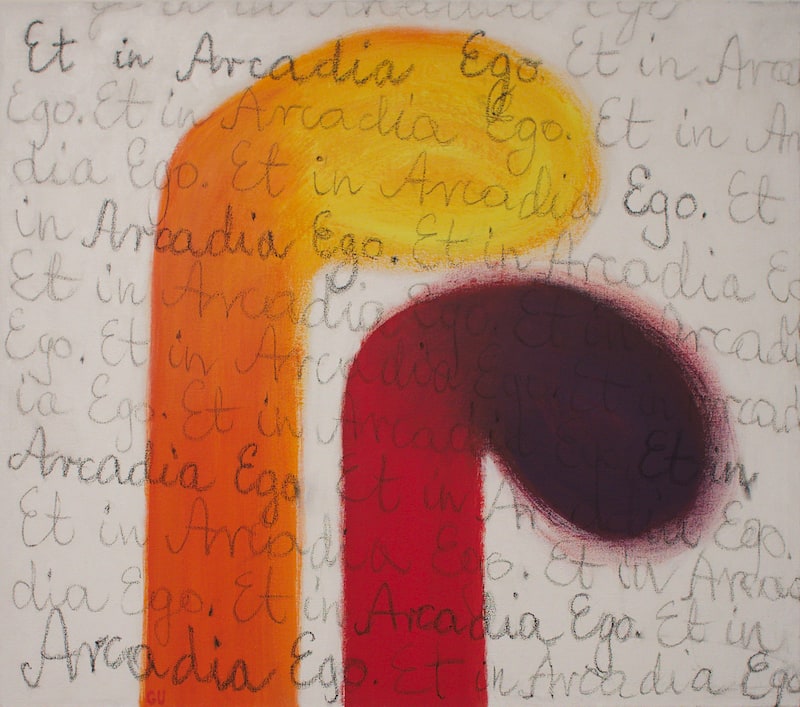 Et in Arcadia Ego. Et in Arca
Ego. Et in Arcadia Ego. Et in Ar
dia Ego. Et in Arcadia Ego. Et
in Arcadia Ego. Et in Arcadia E
Et in Arcadia Ego. Et in Arcadi
Ego. Et in Arcadia Ego. Et in Arcad
ia Ego. Et in Arcadia Ego. Et in
Arcadia Ego. Et in Arcadia Ego.
Et in Arcadia Ego. Et in Arca
dia Ego. Et in Arcadia Ego. Et in
Arcadia Ego. Et in Arcadia Ego
GU